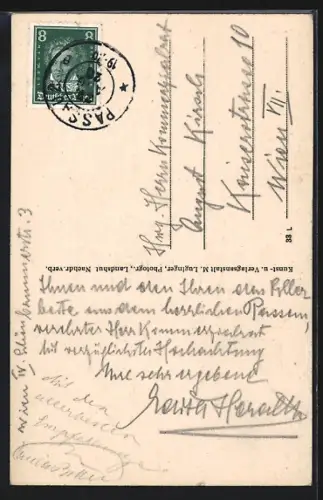 8 8
Deutsches Reich
PASSAU
Hrg. Herrn Kommerzialrat
August Kirsch
Kaiserstrasse 10
Wien VII.
38 L
Kunst- u. Verlagsanstalt M. Luginger, Photogr., Landshut Nachdr. verb.
Ihnen und den Ihren das Aller
beste aus dem herrlichen Passau,
verehrter Herr Kommerzialrat
mit vorzüglichster Hochachtung
Ihre sehr ergebene
Wien IV, 3
Mit den
allerbesten
Empfehlungen